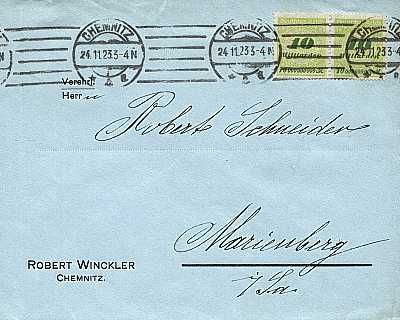 CHEMNITZ
24.11.23.3-4N
CHEMNITZ
24.11.23.3-4N
CHEMNITZ
24.11.23.3-4N
10
Milliarden
10
Verehrl.
Herrn
Robert Schneider
Marienberg
i/Sa
ROBERT WINCKLER
CHEMNITZ.